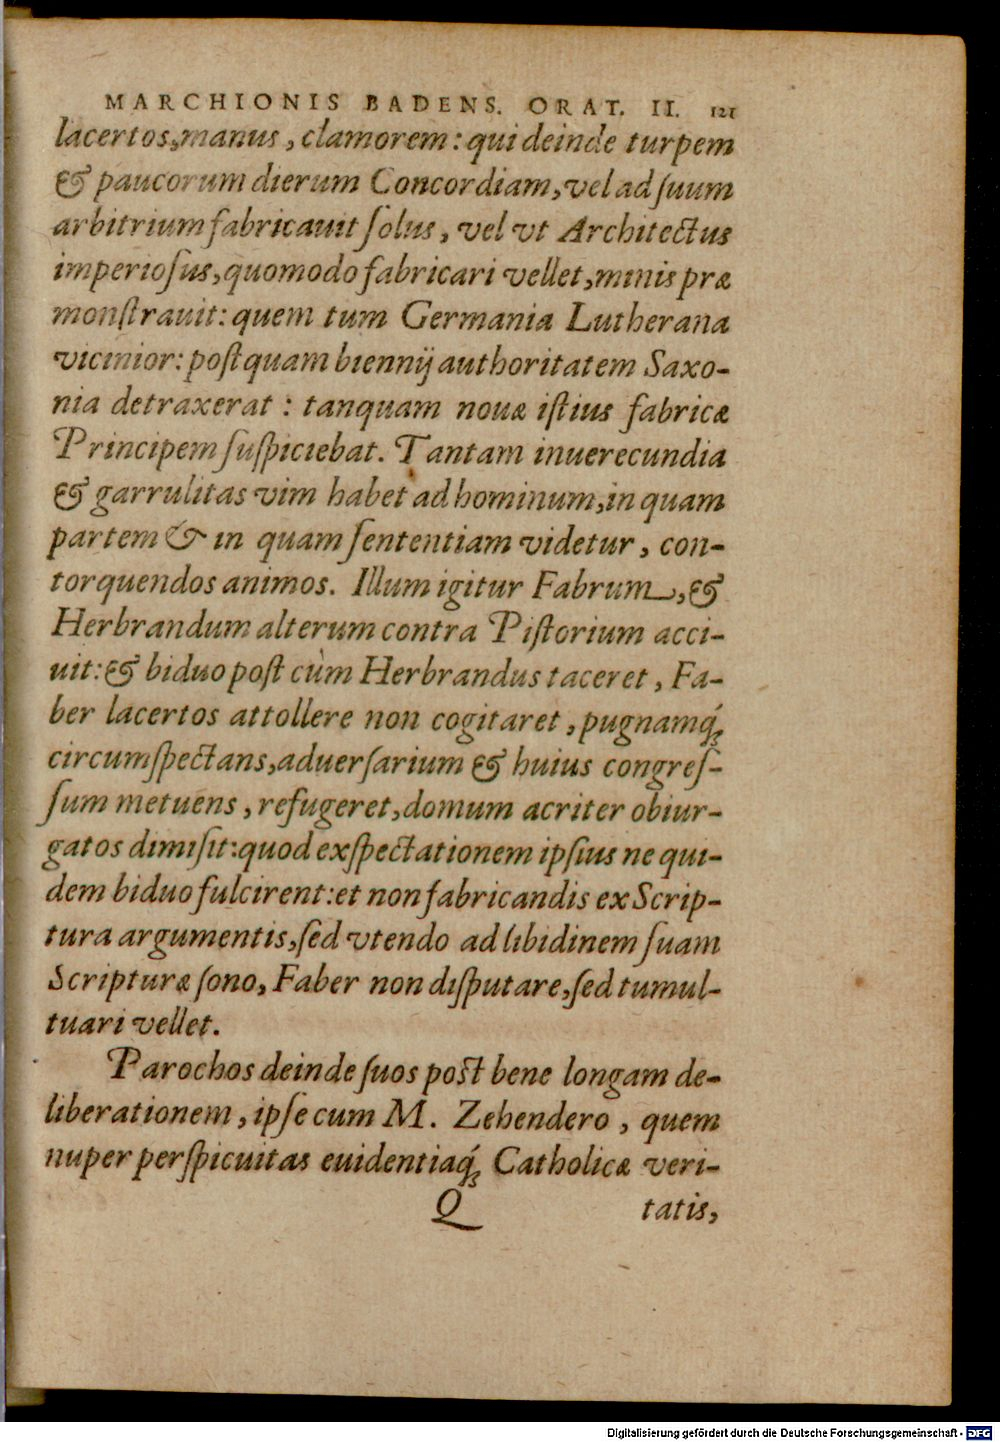 MARCHIONIS BADENS. ORAT. II. 121
lacertos, manus, clamorem: qui deinde turpem
& paucorum dierum Concordiam, vel ad ſuum
arbitrium fabricauit ſolus, vel vt Architectus
imperioſus, quomodo fabricari vellet, minis præ
monſtrauit: quem tum Germania Lutherana
vicinior: poſtquam biennij authoritatem Saxo-
nia detraxerat: tanquam nouæ iſtius fabricæ
Principem ſuſpiciebat. Tantam inuerecundia
& garrulitas vim habet ad hominum, in quam
partem & in quam ſententiam videtur, con-
torquendos animos. Illum igitur Fabrum, &
Herbrandum alterum contra Piſtorium acci-
uit: & biduo poſt cùm Herbrandus taceret, Fa-
ber lacertos attollere non cogitaret, pugnamq́;
circumſpectans, aduerſarium & huius congreſ-
ſum metuens, refugeret, domum acriter obiur-
gatos dimiſit: quod exſpectationem ipſius ne qui-
dem biduo fulcirent: et non fabricandis ex Scrip-
tura argumentis, ſed vtendo ad libidinem ſuam
Scripturæ ſono, Faber non diſputare, ſed tumul-
tuari vellet.
Parochos deinde ſuos poſt bene longam de-
liberationem, ipſe cum M. Zehendero, quem
nuper perſpicuitas euidentiaq́; Catholicæ veri-
Q tatis,
Digitalisierung gefördert durch die Deutsche Forschungsgemeinschaft - DFG